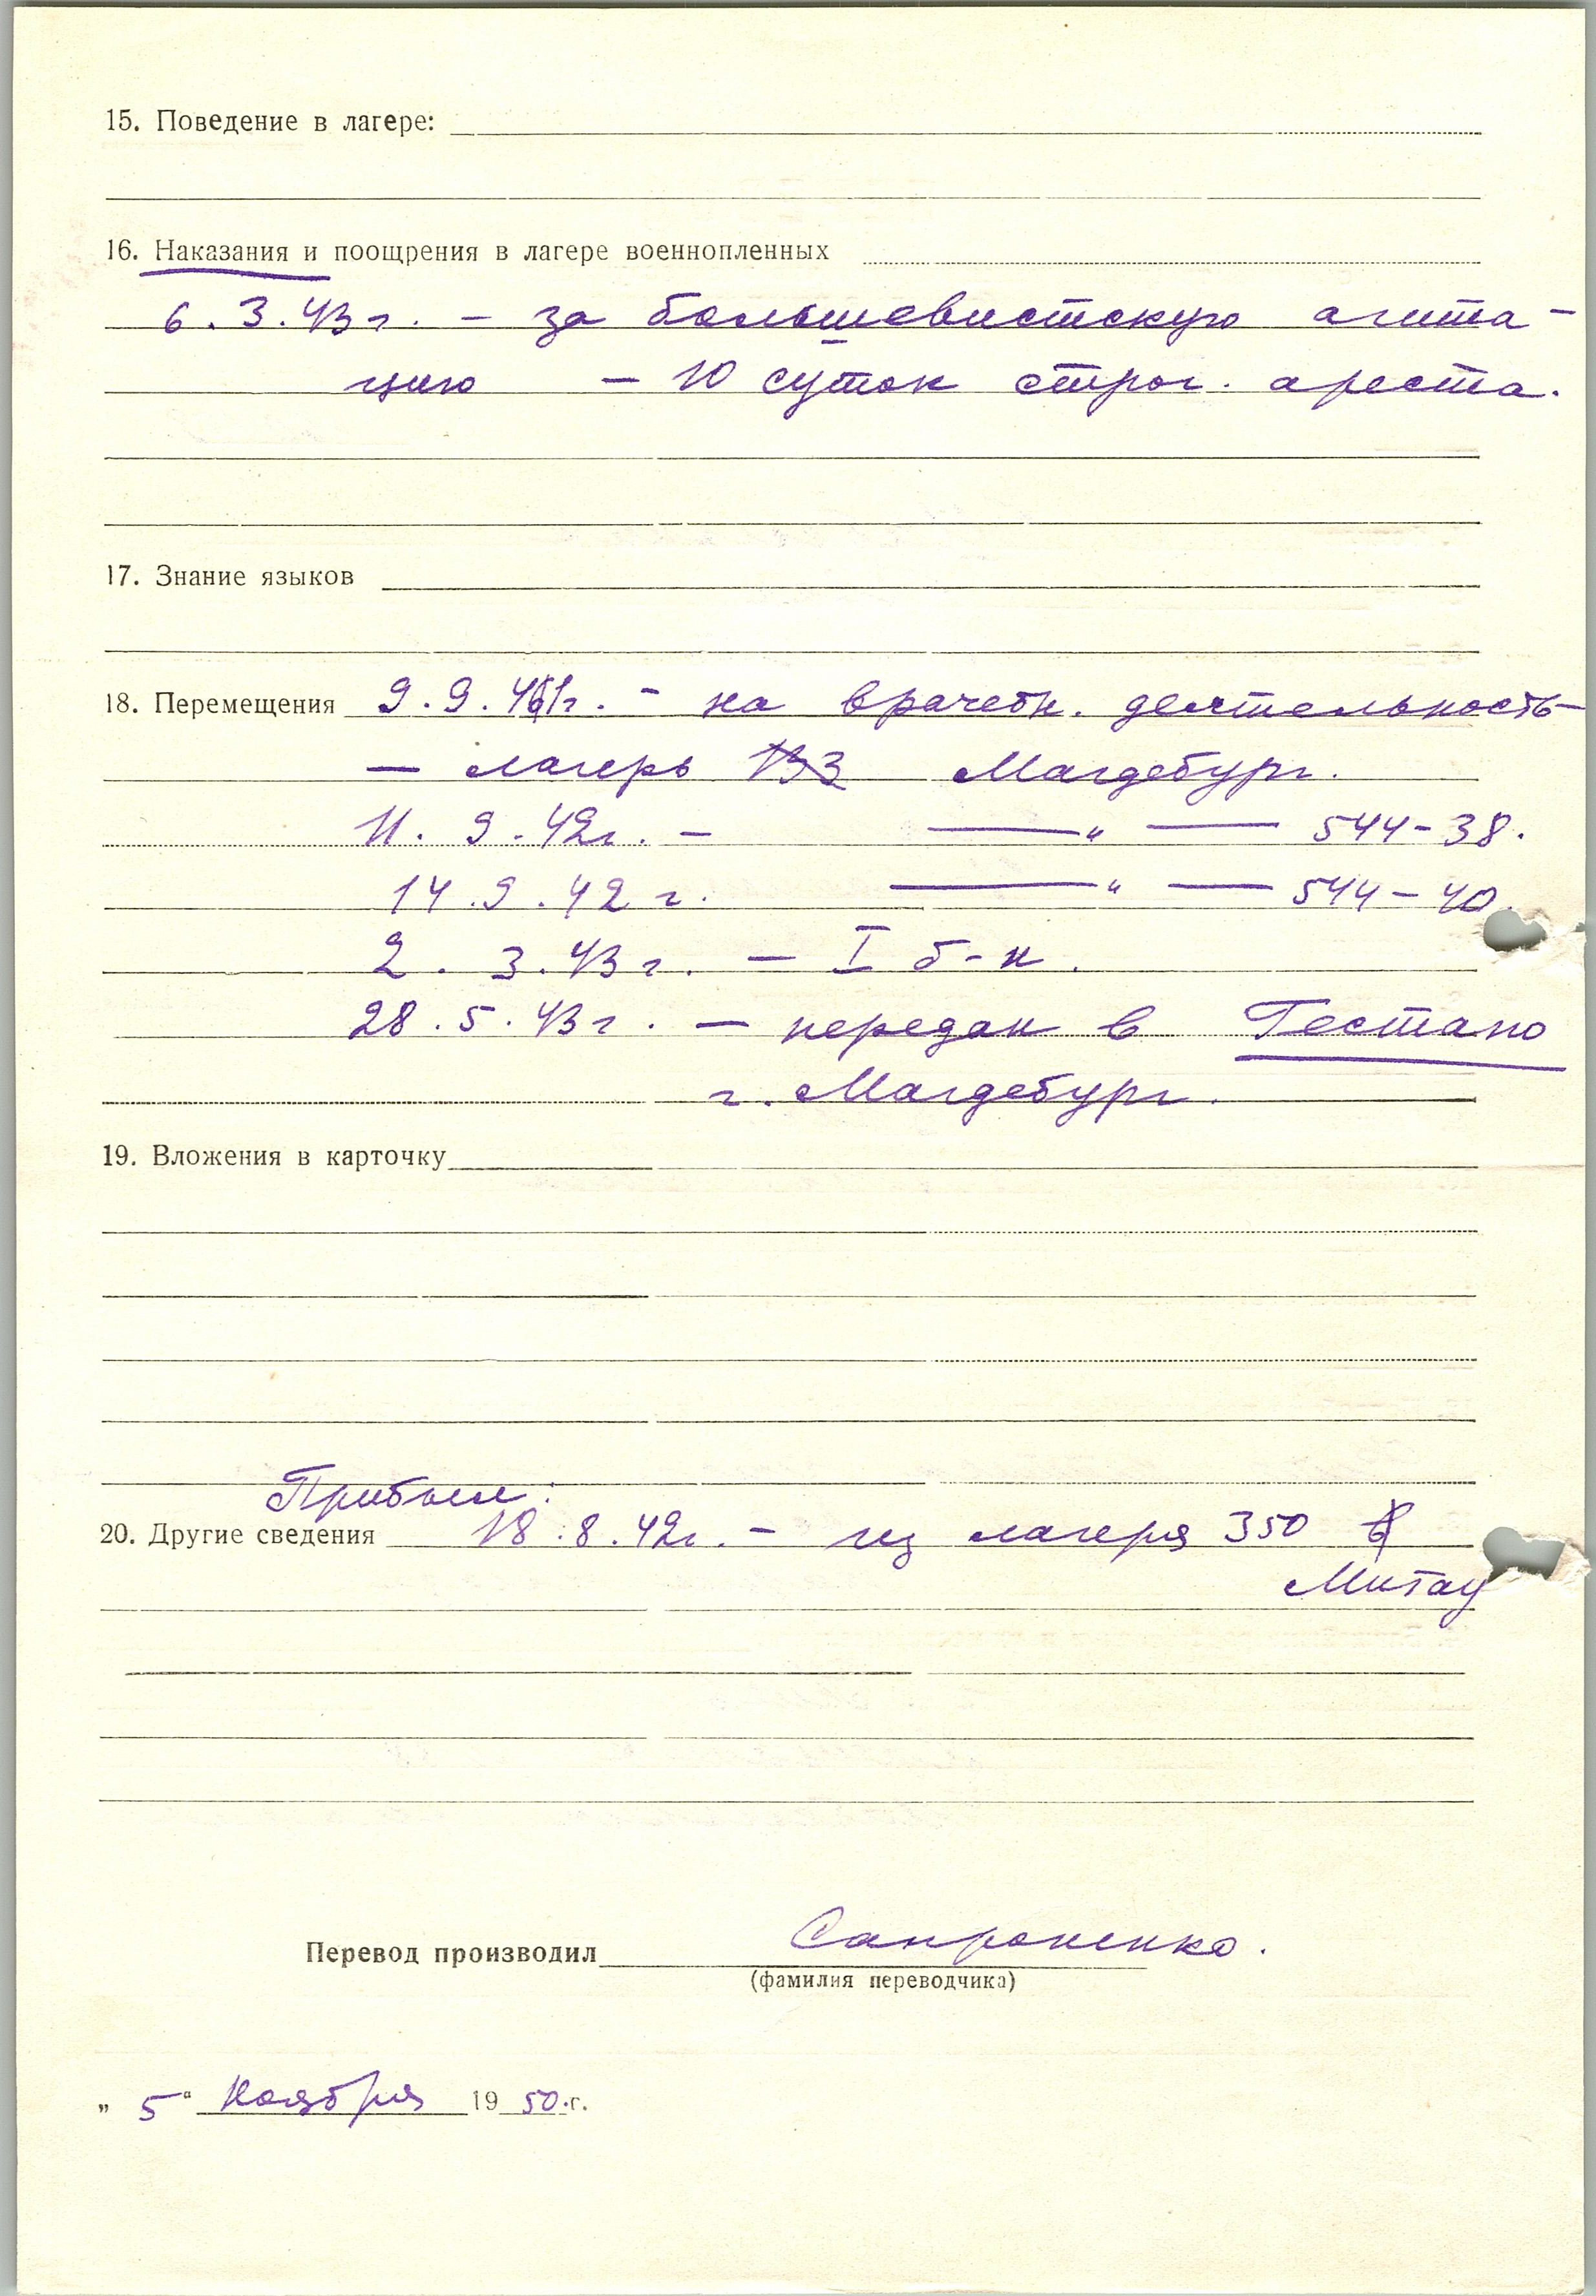 15. Поведение в лагере:
16. Наказания и поощрения в лагере военнопленных
6.3.43г. – за большевистскую агита-
цию – 10 суток строг. ареста.
17. Знание языков
18. Перемещения 9.9. г. – на врачебн. деятельность
– лагерь Магдебург.
11. 9.42г. – —"— 544-38.
14.9.42 г. —"— 544-40.
2. 3.43 г. – I б-н.
28.5.43г. – передан в Гестапо
г. Магдебург.
19. Вложения в карточку
Прибыл:
20. Другие сведения 18.8.42г. – из лагеря 350
Митау
Перевод производил Сапроненко.
(фамилия переводчика)
„ 5 " Ноября 1950.г.